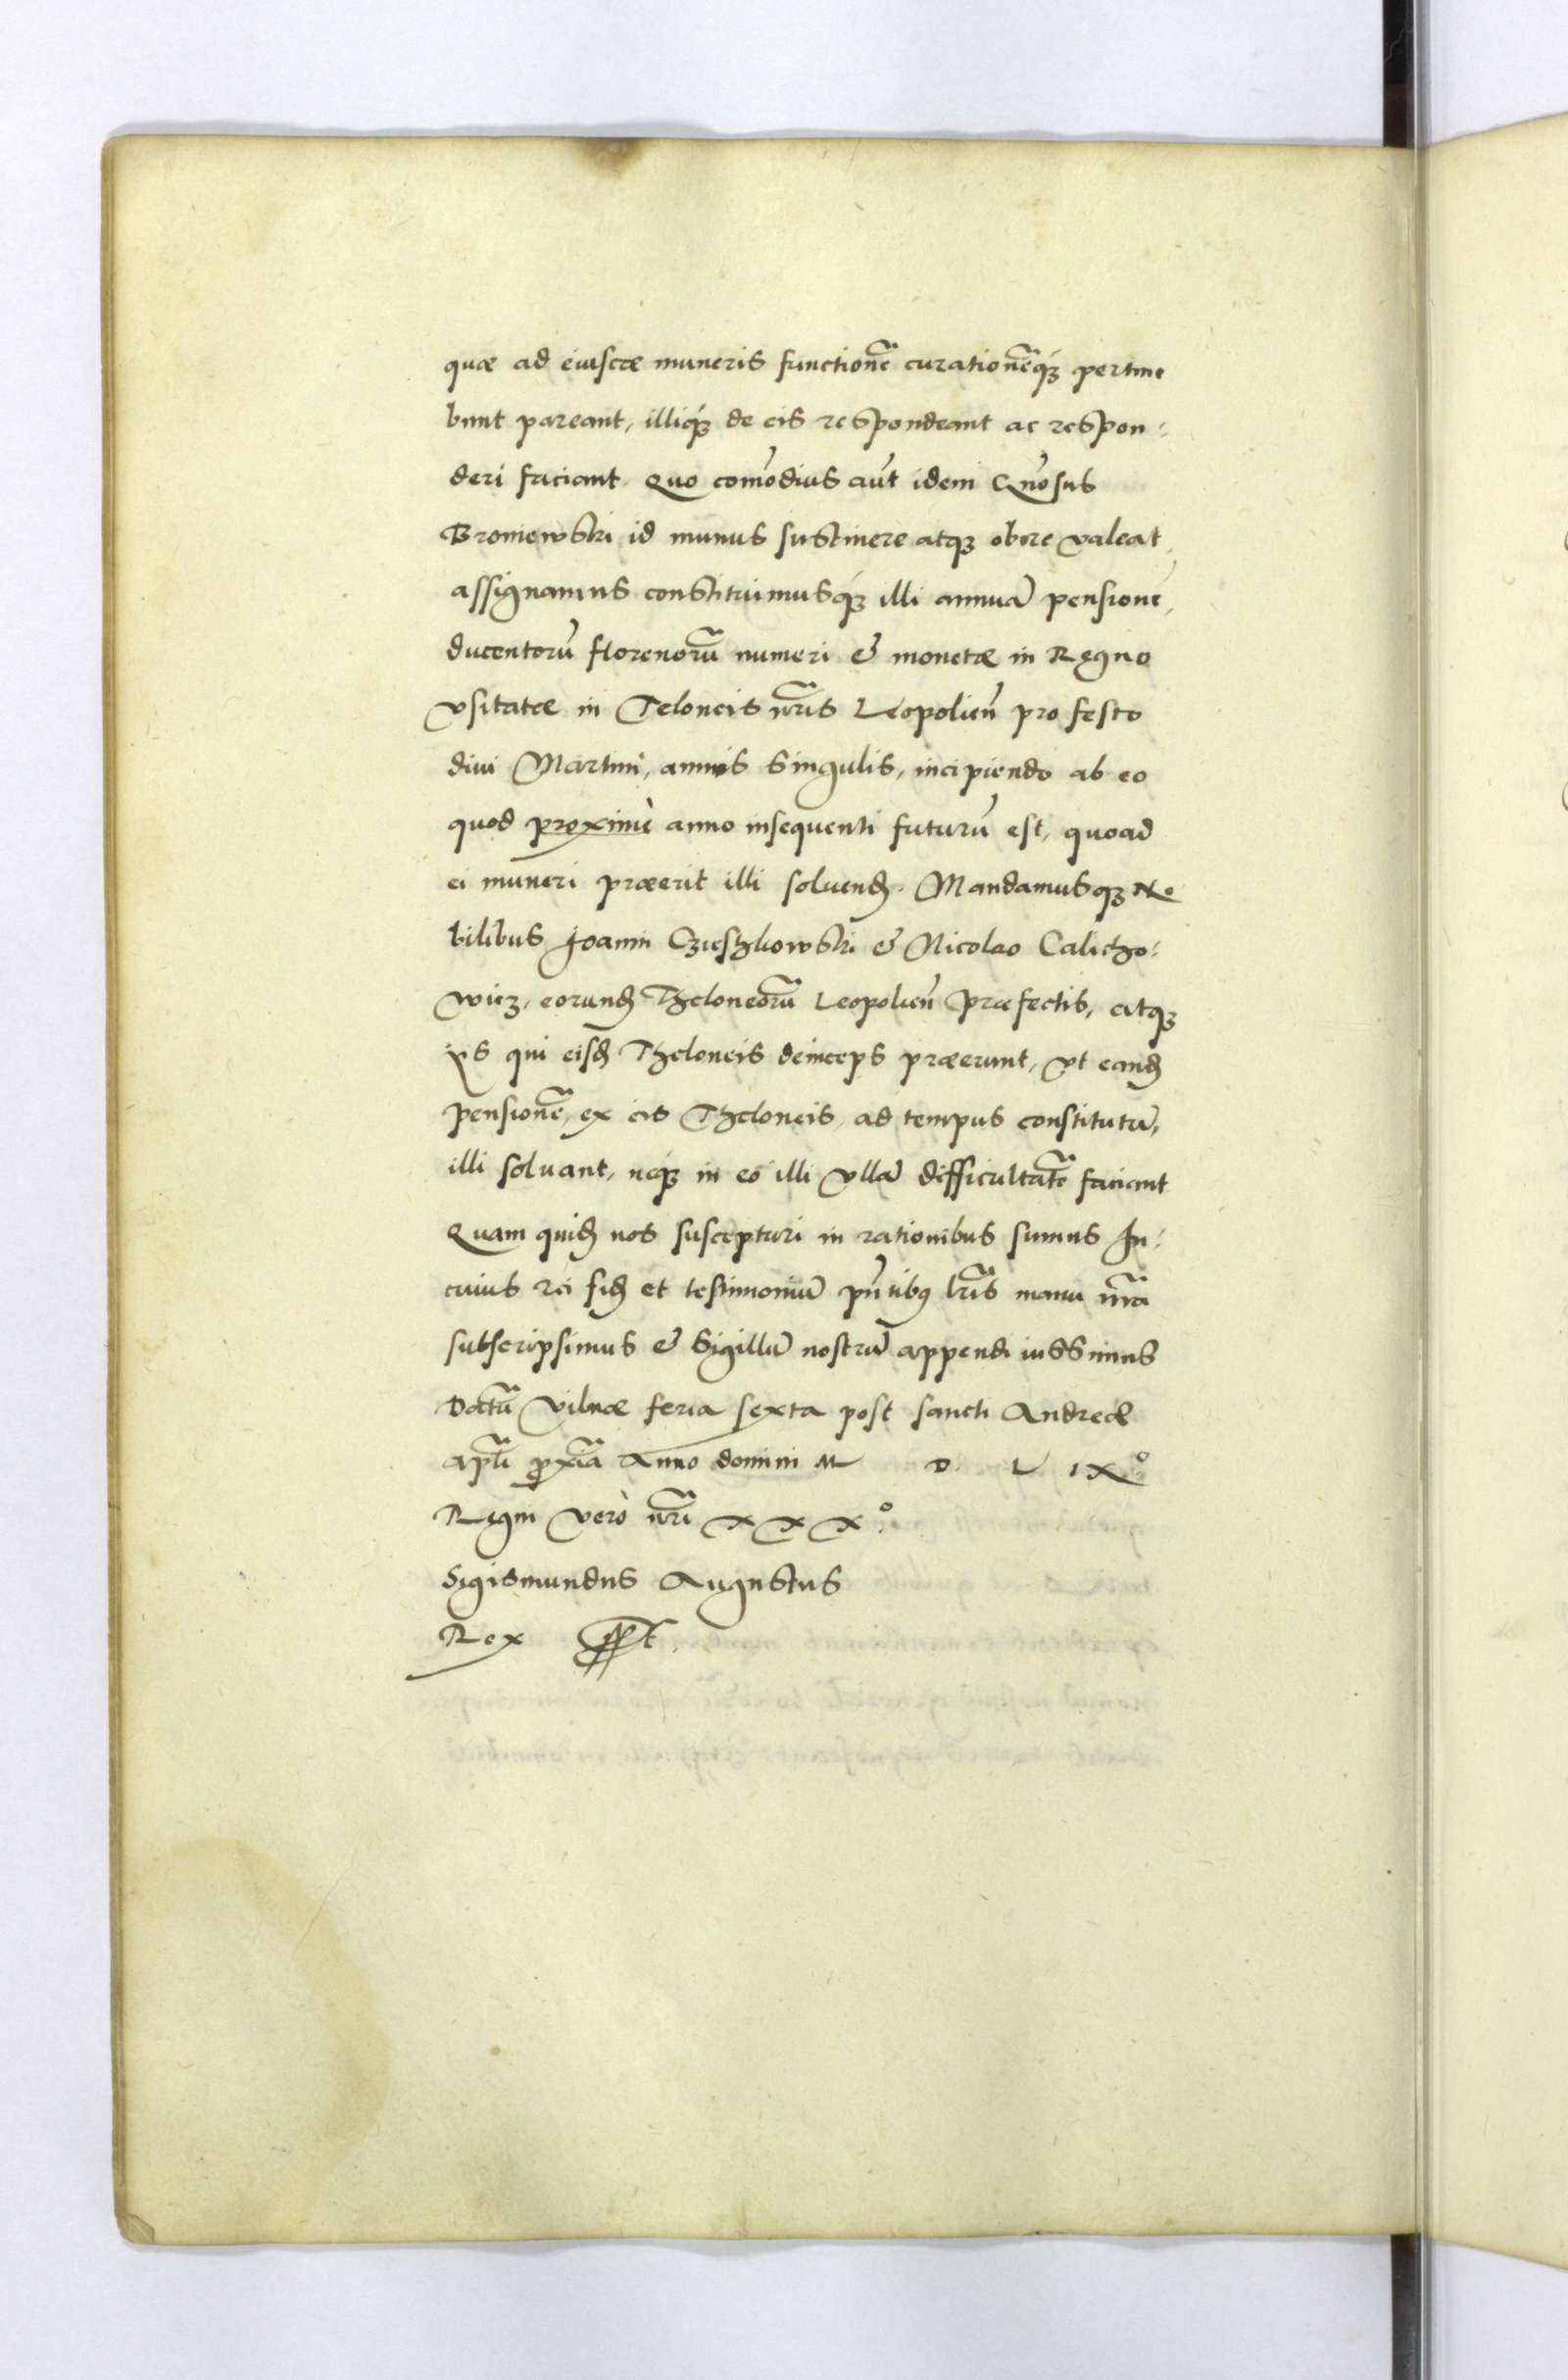 quæ ad eiuscæ muneris functionẽ curationẽq́ꝫ pertine
bunt pareant, illiq́ꝫ de eis respondeant ac respon:
deri faciant. Quo com̃odius aũt idem Gñosus
Broniewski id munus sustinere atqꝫ obire valeat,
assignamus constituimusq́ꝫ illi annuã pensionẽ,
ducentorũ florenorũ numeri & monetæ in Regno
vsitatæ in Teloneis nr̃is Leopolien̄ pro festo
diui Martini, annis singulis, incipiendo ab eo
quod proximè anno insequenti futurũ est, quoad
ei muneri præerit illi soluend̄. Mandamusqꝫ No
bilibus Joanni Czieszkowski & Nicolao Caliczo:
wicz, eorund̄ Theloneorũ Leopolien̄ Præfectis, atqꝫ
ijs qui eisd̄ Theloneis deinceps præerunt, vt eand̄
pensionẽ, ex eis Theloneis, ad tempus constitutũ,
illi soluant, neq́ꝫ in eo illi vllã difficultatẽ faciant
Quam quid̄ nos suscepturi in rationibus sumus In:
cuius rei fid̄ et testimoniũ pñtibꝯ lr̃is manu nr̃a
subscripsimus & Sigillũ nostrũ appendi iussimus
Datũ Vilnæ feria sexta post sancti Andreæ
apl̃i prox̃ia Anno domini M D L IX°
Regni verò nr̃i XXX°.
Sigismundus Augustus
Rex